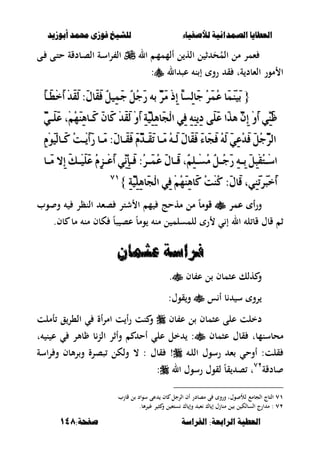 العطايا الصمدانية للأصفياء للشيخ فوزي محمد أبوزيد
فعمر من المُحَدَثين الذين ألهمهم الله الفراسة الصادقة حتى فى
الأمور العادية، فقد روى إبنه عبدالله :
{ بَيْنَمَا عُمَرُ جَالِساً إِذَ مَّرَّ به رَجُلٌ جَمِيلٌ فَقَالَ: لَقَدْ أَخطَأَ
ظَنِّي أَوْ إِنَّ هذَا عَلَى دِينِهِ فِي الجَاهِلِيَّةِ أَوْ لَقَدْ كَانَ كَاهِنَهُمْ، عَلَيَّ
الرَّجُلَ فَدُعِيَ لَهُ فَجَاءَ فَقَالَ لَهُ مَا تَقَدَّمَ فَقَالَ: مَا رَأَيْتُ كَالْيَوْمِ
اسْتُقْبِلَ بِهِ رَجُلٌ مُسْلِمٌ، قَالَ عُمَرُ: فَإِنِّي أَعْزِمُ عَلَيْكَ إِلَّا مَا
أَخْبَرْتَنِي، قَالَ: كُنْتُ كَاهِنَهُمْ فِي الْجَاهِلِيَّةِ } ٧١
ورأى عمر قوماً من مذحج فيهم الأشتر فصعد النظر فيه وصوب
ثم قال قاتله الله إني لأرى للمسلمين منه يوماً عصيباً فكان منه ما كان.
فراسة عثمان
وكذلك عثمان بن عفان .
يروى سيدنا أنس ويقول:
دخلت على عثمان بن عفان وكنت رأيت امرأة في الطريق تأملت
محاسنها، فقال عثمان : يدخل علي أحدكم وأثر الزنا ظاهر في عينيه،
فقلت: أوحي بعد رسول الله ! فقال : لا ولكن تبصرة وبرهان وفراسة
صادقة٧٢، تصديقاً لقول رسول الله :
٧١ التاج الجامع للأصول، وروى فى مصادر أن الرجل كان يدعى سواد بن قارب
٧٢ : مدارج السالكين بين منازل إياك نعبد وإياك نستعين وكثير غيرها.
العطية الرابعة: الفراسة صفحة:١٤٨